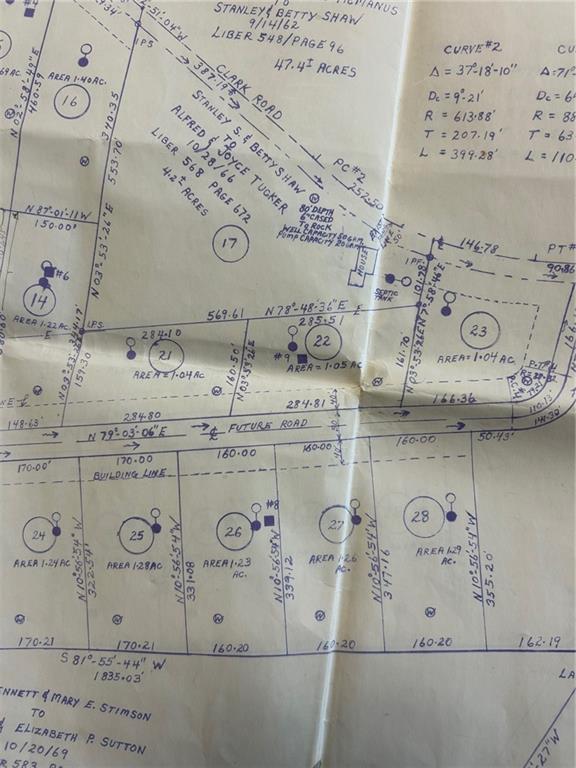 TO
STANLEY & BETTY SHAW
9/14/62
LIBER 548/PAGE 96
47.4± ACRES
CURVE #2
Δ = 37°-18'-10"
Dc = 9°-21'
R = 613.88'
T = 207.19'
L = 399.28'
IPS
387.19'±
CLARK ROAD
STANLEY S. & BETTY SHAW
TO
ALFRED & JOYCE TUCKER
10/28/66
LIBER 568 PAGE 672
4.2± ACRES
PC #2
252.50
AREA 1.40AC.
16
N 02°-58'-49" E
460.59
370.35
553.70'
N 03°-53'-26" E
N 87°-01'-11" W
150.00'
80' DEPTH
6" CASED
TO ROCK
WELL CAPACITY 50 G.P.M.
PUMP CAPACITY 20 G.P.M.
17
HOUSE
SEPTIC
TANK
IPF
146.78
PT #
90.86
101.78'
N 7°-58'-46" E
#6
14
AREA 1.22AC.
I.P.S.
569.61
N 78°-48'-36" E
284.10
285.51
21
AREA = 1.04 AC.
160.50'
N 03°-53'-26" E
#9
22
AREA = 1.05 AC.
161.70
N 03°-53'-26" E
23
AREA = 1.04 AC.
157.30
W
148.63'
284.80
284.81
166.36
110.13
N 79°-03'-06" E
FUTURE ROAD
170.00'
170.00
160.00
160.00
160.00
50.43'
BUILDING LINE
24
AREA 1.24AC
N 10°-56'-54" W
322.54'
25
AREA 1.28AC
N 10°-56'-54" W
331.08
#8
26
AREA 1.23
AC.
N 10°-56'-54" W
339.12
27
AREA 1.26
AC.
N 10°-56'-54" W
347.16
28
AREA 1.29
AC.
N 10°-56'-54" W
355.20'
W
W
W
W
170.21
170.21
160.20
160.20
160.20
162.19
S 81°-55'-44" W
1835.03'
& MARY E. STIMSON
TO
& ELIZABETH P. SUTTON
10/20/69
LA